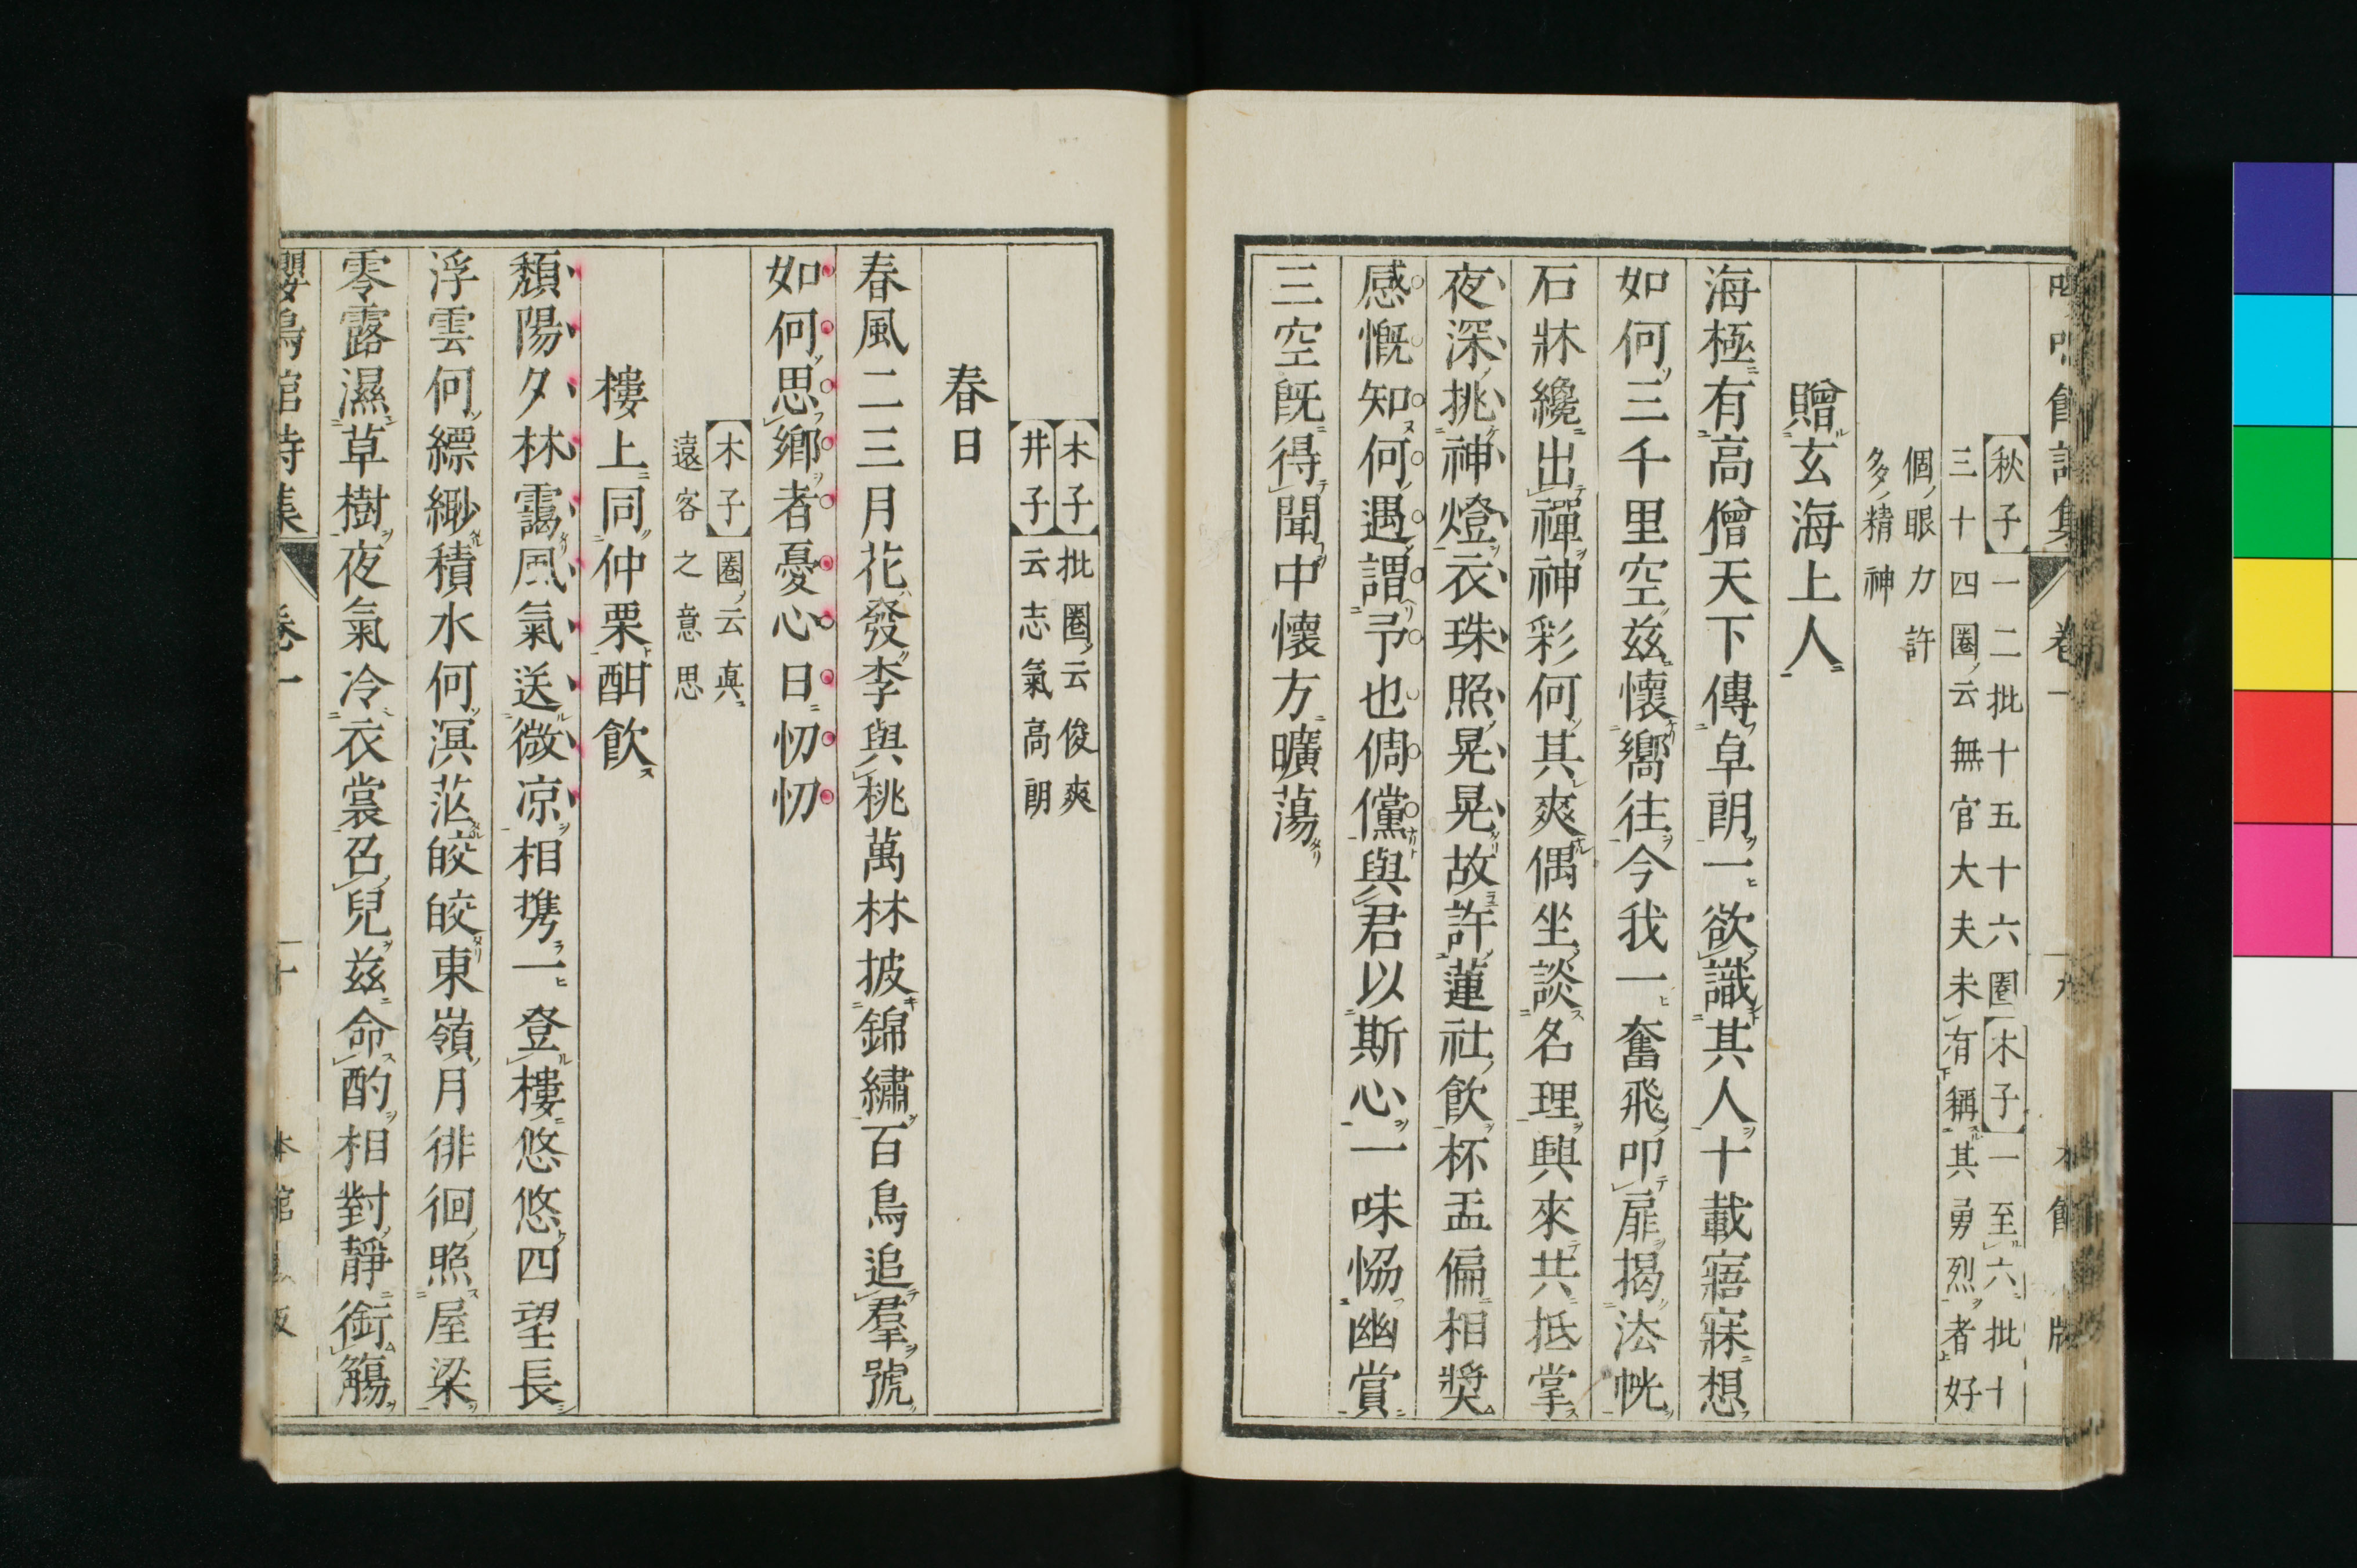 嚶鳴館詩集 卷一 本館 版
【秋子】一二批十五十六圈【木子】一至六批十
三十四圈云無官大夫未有稱其勇烈者好
個眼力許
多精神
贈玄海上人
海極有高僧天下傳卓朗一欲識其人十載寤寐想
如何三千里空玆懷嚮往今我一奮飛叩扉揭法幌
石牀纔出禪神彩何其爽偶坐談名理興來共抵掌
夜深挑神燈衣珠照晃晃故許蓮社飲杯盂偏相奬
感慨知何遇謂予也倜儻與君以斯心一味恊幽賞
三空旣得聞中懷方曠蕩
【木子】批圈云俊爽
【井子】云志氣高朗
春日
春風二三月花發李與桃萬林披錦繡百鳥追羣號
如何思鄉者憂心日忉忉
【木子】圈云眞
遠客之意思
樓上同仲栗酣飮
頹陽夕林靄風氣送微凉相携一登樓悠悠四望長
浮雲何縹緲積水何溟茫皎皎東嶺月徘徊照屋梁
零露濕草樹夜氣冷衣裳召兒玆命酌相對靜銜觴
嚶鳴館詩集 卷一 二十 本館 版